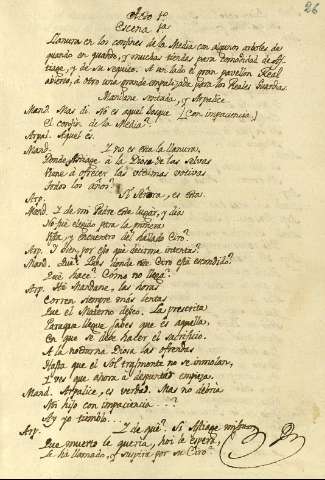 26
Acto 1º
Escena 1ª
Llanura en los confines de la Media con algunos arboles de
quando en quando, y muchas tiendas para comodidad de As-
tiage, y de su sequito. A un lado el gran pavellon Real
abierto, à otro una grande empalizada para las Reales Guardas.
Mandane sentada, y Arpalice.
Mand. Mas di: No es aquel bosque (con impaciencia)
El confin de la Media?
Arpal. Aquel es.
Mand. Y no es esta la llanura,
Donde Astiage à la Diosa de las selvas
Viene à ofrecer las victimas votivas
todos los años?
Arp. Si Señora, es esta.
Mand. Y de mi Padre este lugar, y dia
No fue elegido para la primera
Vista, y encuentro del hallado Ciro?
Arp. Y bien, por eso que decirme intentas?
Mand. Què? Pues donde este Ciro està escondido?
Què hace? Como no llega?
Arp. Hà Mandane, las horas
Corren siempre mas lentas
Que el Materno deseo. La prescrita
Paraque llegue sabes que es aquella,
En que se debe hacer el sacrificio.
A la nocturna Diosa las ofrendas
Hasta que el Sol trasmonte no se inmolan,
Y no es que ahora à despuntar empieza.
Mand. Arpalice, es verdad. Mas no debria
Un hijo con impaciencia . . . ?
Ay yo tiemblo!
Arp. Y de què? Si Astiage mismo
Que muerto le queria, hoi le espera,
Le ha llamado, y suspira por su Ciro?